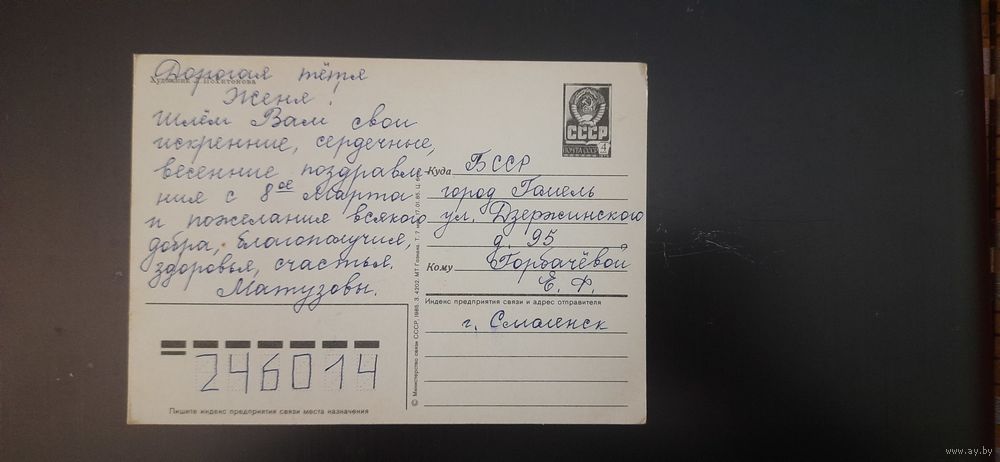 Художник Л. Похитонова
Дорогая тётя
Женя!
Шлём Вам свои
искренние, сердечные,
весенние поздравле-
ния с 8ое Марта
и пожелания всякого
добра, благополучия,
здоровья, счастья.
Матузовы.
СССР
ПОЧТА СССР 4
Куда БССР
город Гомель
ул. Дзержинского
д. 95
Кому Горбачёвой
Е. Ф.
Индекс предприятия связи и адрес отправителя
г. Смоленск
246014
Пишите индекс предприятия связи места назначения
© Министерство связи СССР, 1985. З. 4202. МТ Гознака.
www.ay.by